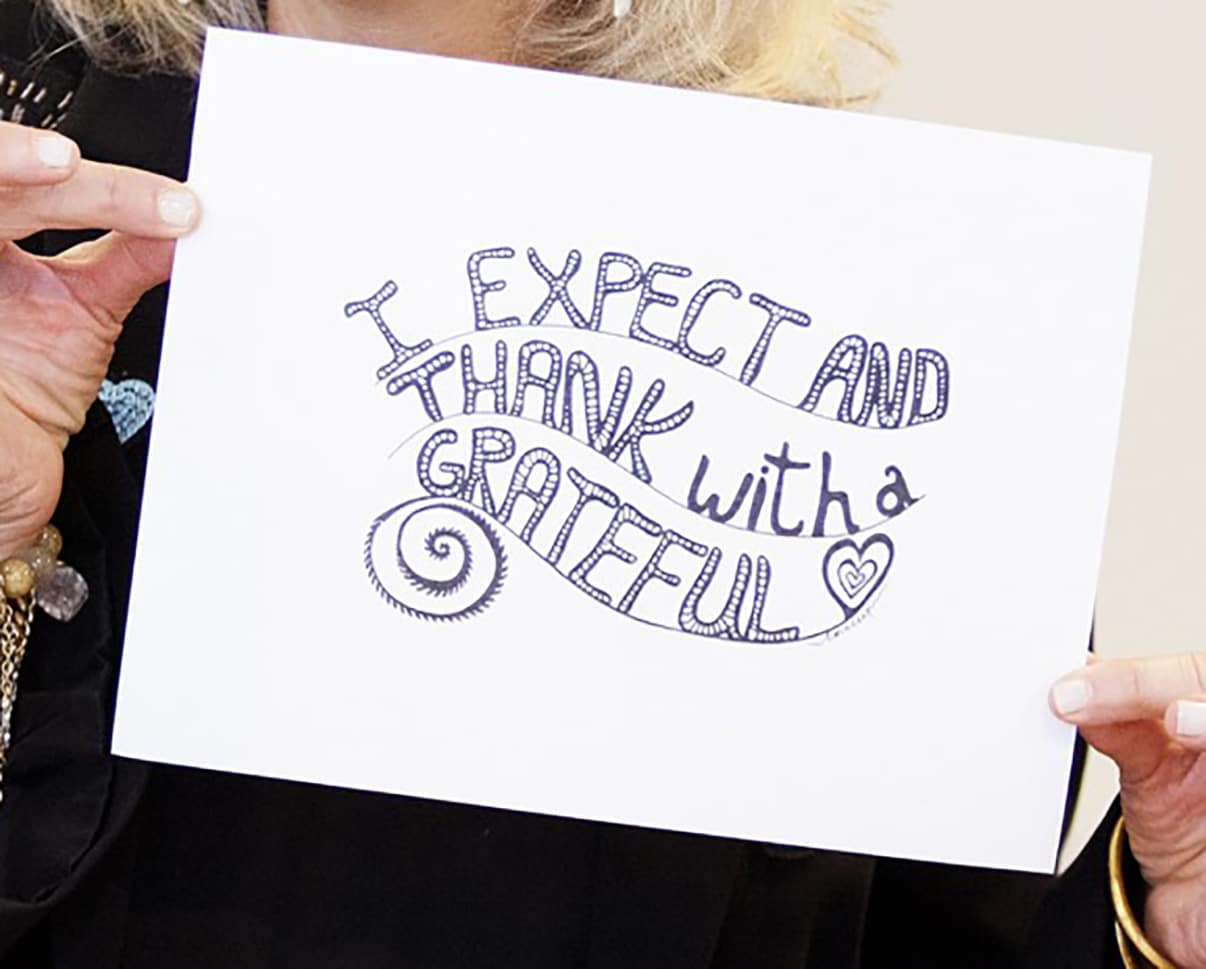 I EXPECT AND
THANK with a
GRATEFUL